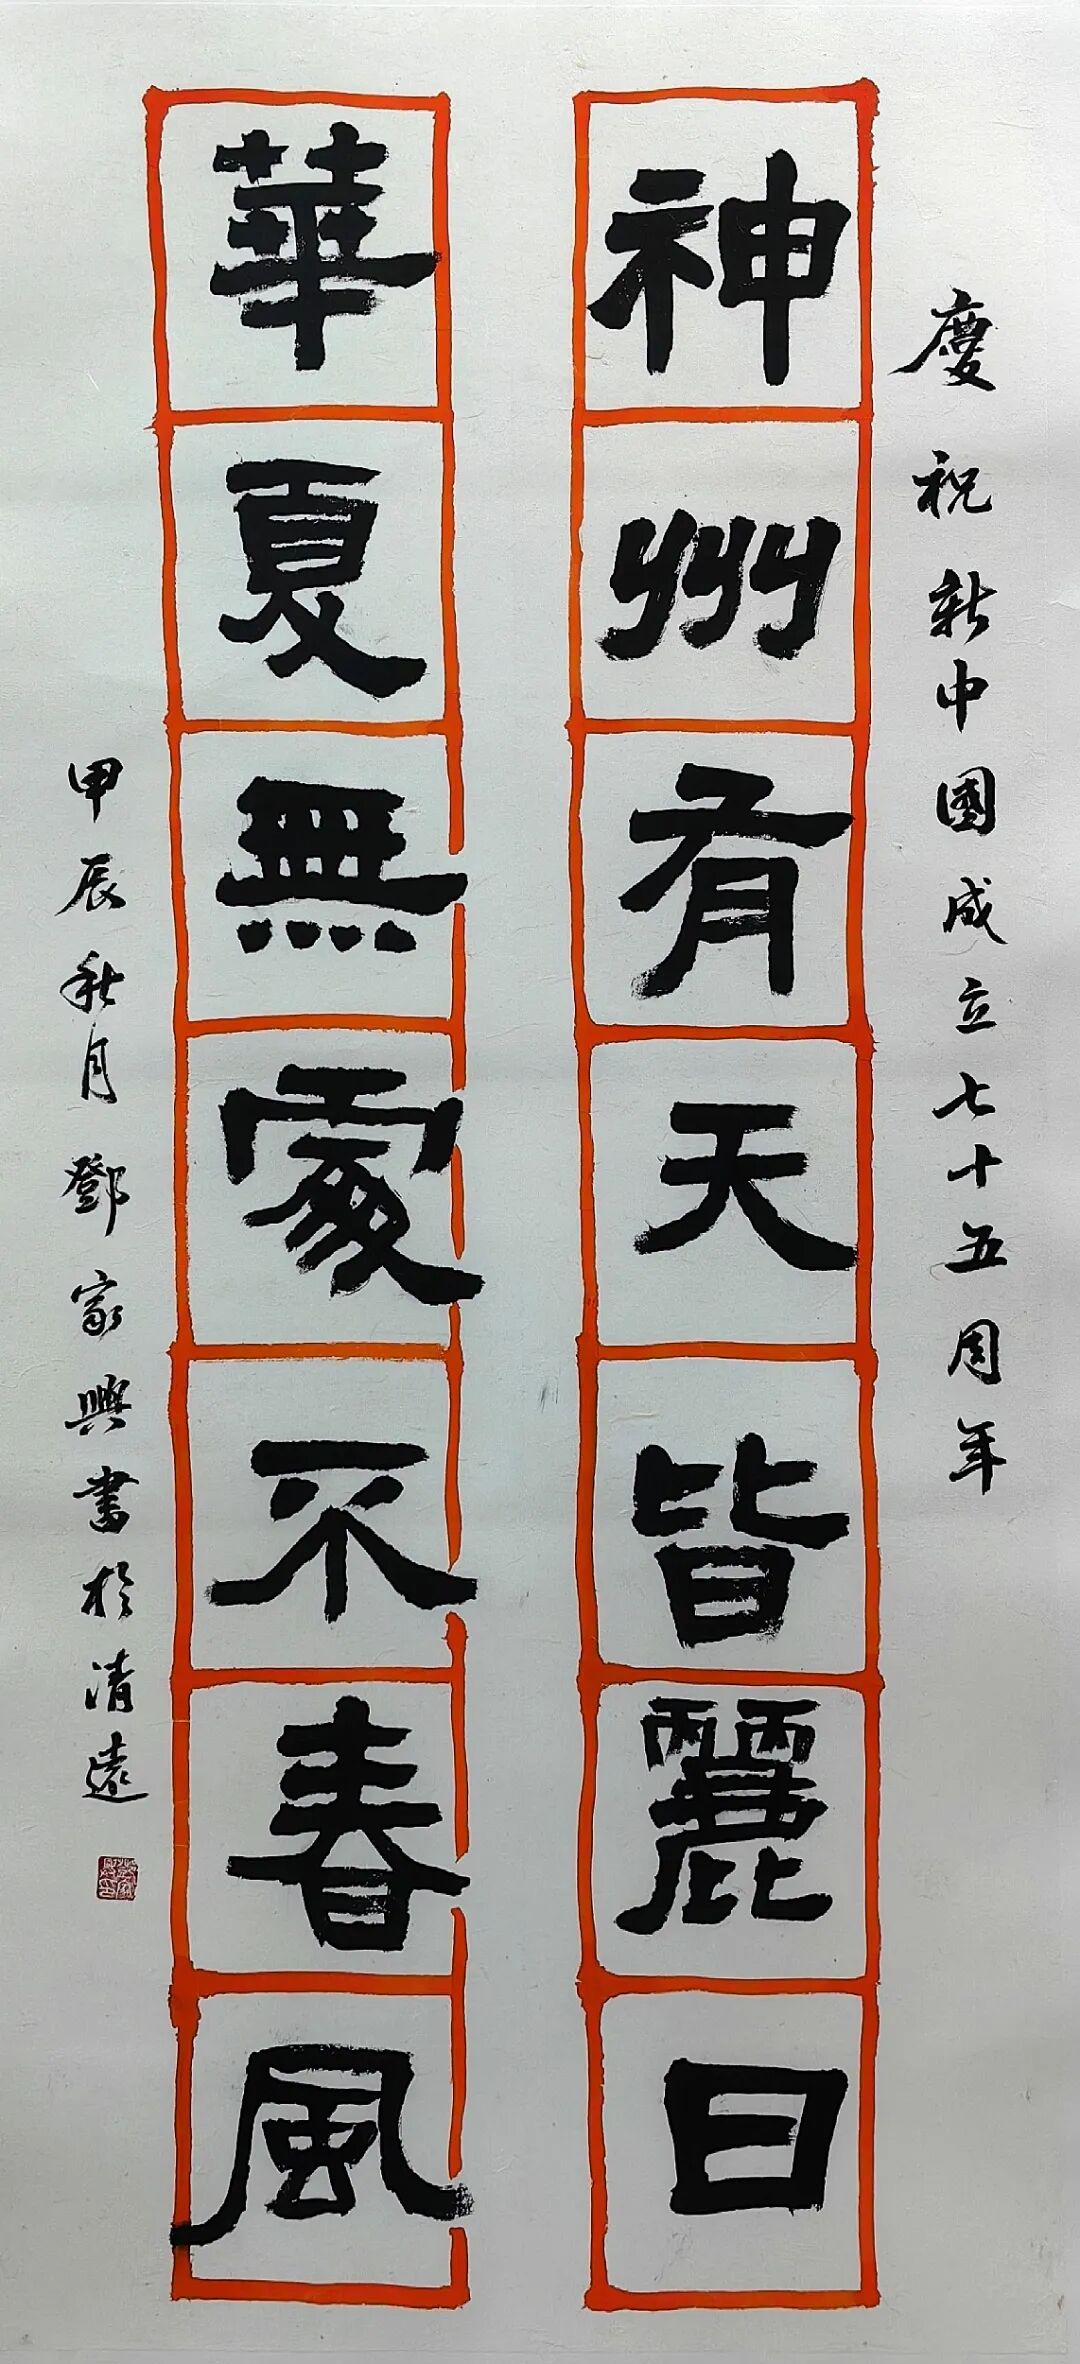 慶祝新中國成立七十五周年
神州有天皆麗日
華夏無處不春風
甲辰秋月鄧家興書於清遠